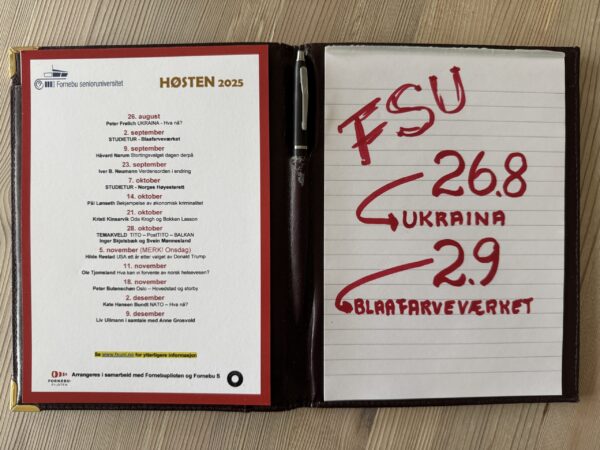 Fornebu senioruniversitet
HØSTEN 2025
26. august
Peter Frølich UKRAINA - Hva nå?
2. september
STUDIETUR - Blaafarveværket
9. september
Håvard Narum Stortingsvalget dagen derpå
23. september
Iver B. Neumann Verdensorden i endring
7. oktober
STUDIETUR - Norges Høyesterett
14. oktober
Pål Lønseth Bekjempelse av økonomisk kriminalitet
21. oktober
Kristi Kinsarvik Oda Krogh og Bokken Lasson
28. oktober
TEMAKVELD TITO – PostTITO – BALKAN
Inger Skjelsbæk og Svein Mønnesland
5. november (MERK! Onsdag)
Hilde Restad USA ett år etter valget av Donald Trump
11. november
Ole Tjomsland Hva kan vi forvente av norsk helsevesen?
18. november
Peter Butenschøn Oslo – Hovedstad og storby
2. desember
Kate Hansen Bundt NATO – Hva nå?
9. desember
Liv Ullmann i samtale med Anne Grosvold
Se www.fsuni.no for ytterligere informasjon
Arrangeres i samarbeid med Fornebupiloten og Fornebu S
FORNEBU-
PILOTEN
FSU
26.8
UKRAINA
2.9
BLAAFARVEVÆRKET